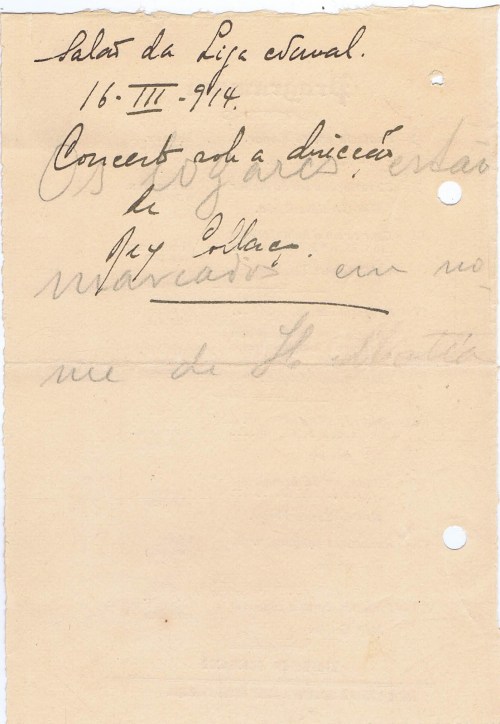 Salão da Liga Naval.
16-III-914.
Concerto sob a direcção
de
Rey Collaço.
Os logares estão
marcados em no-
me de